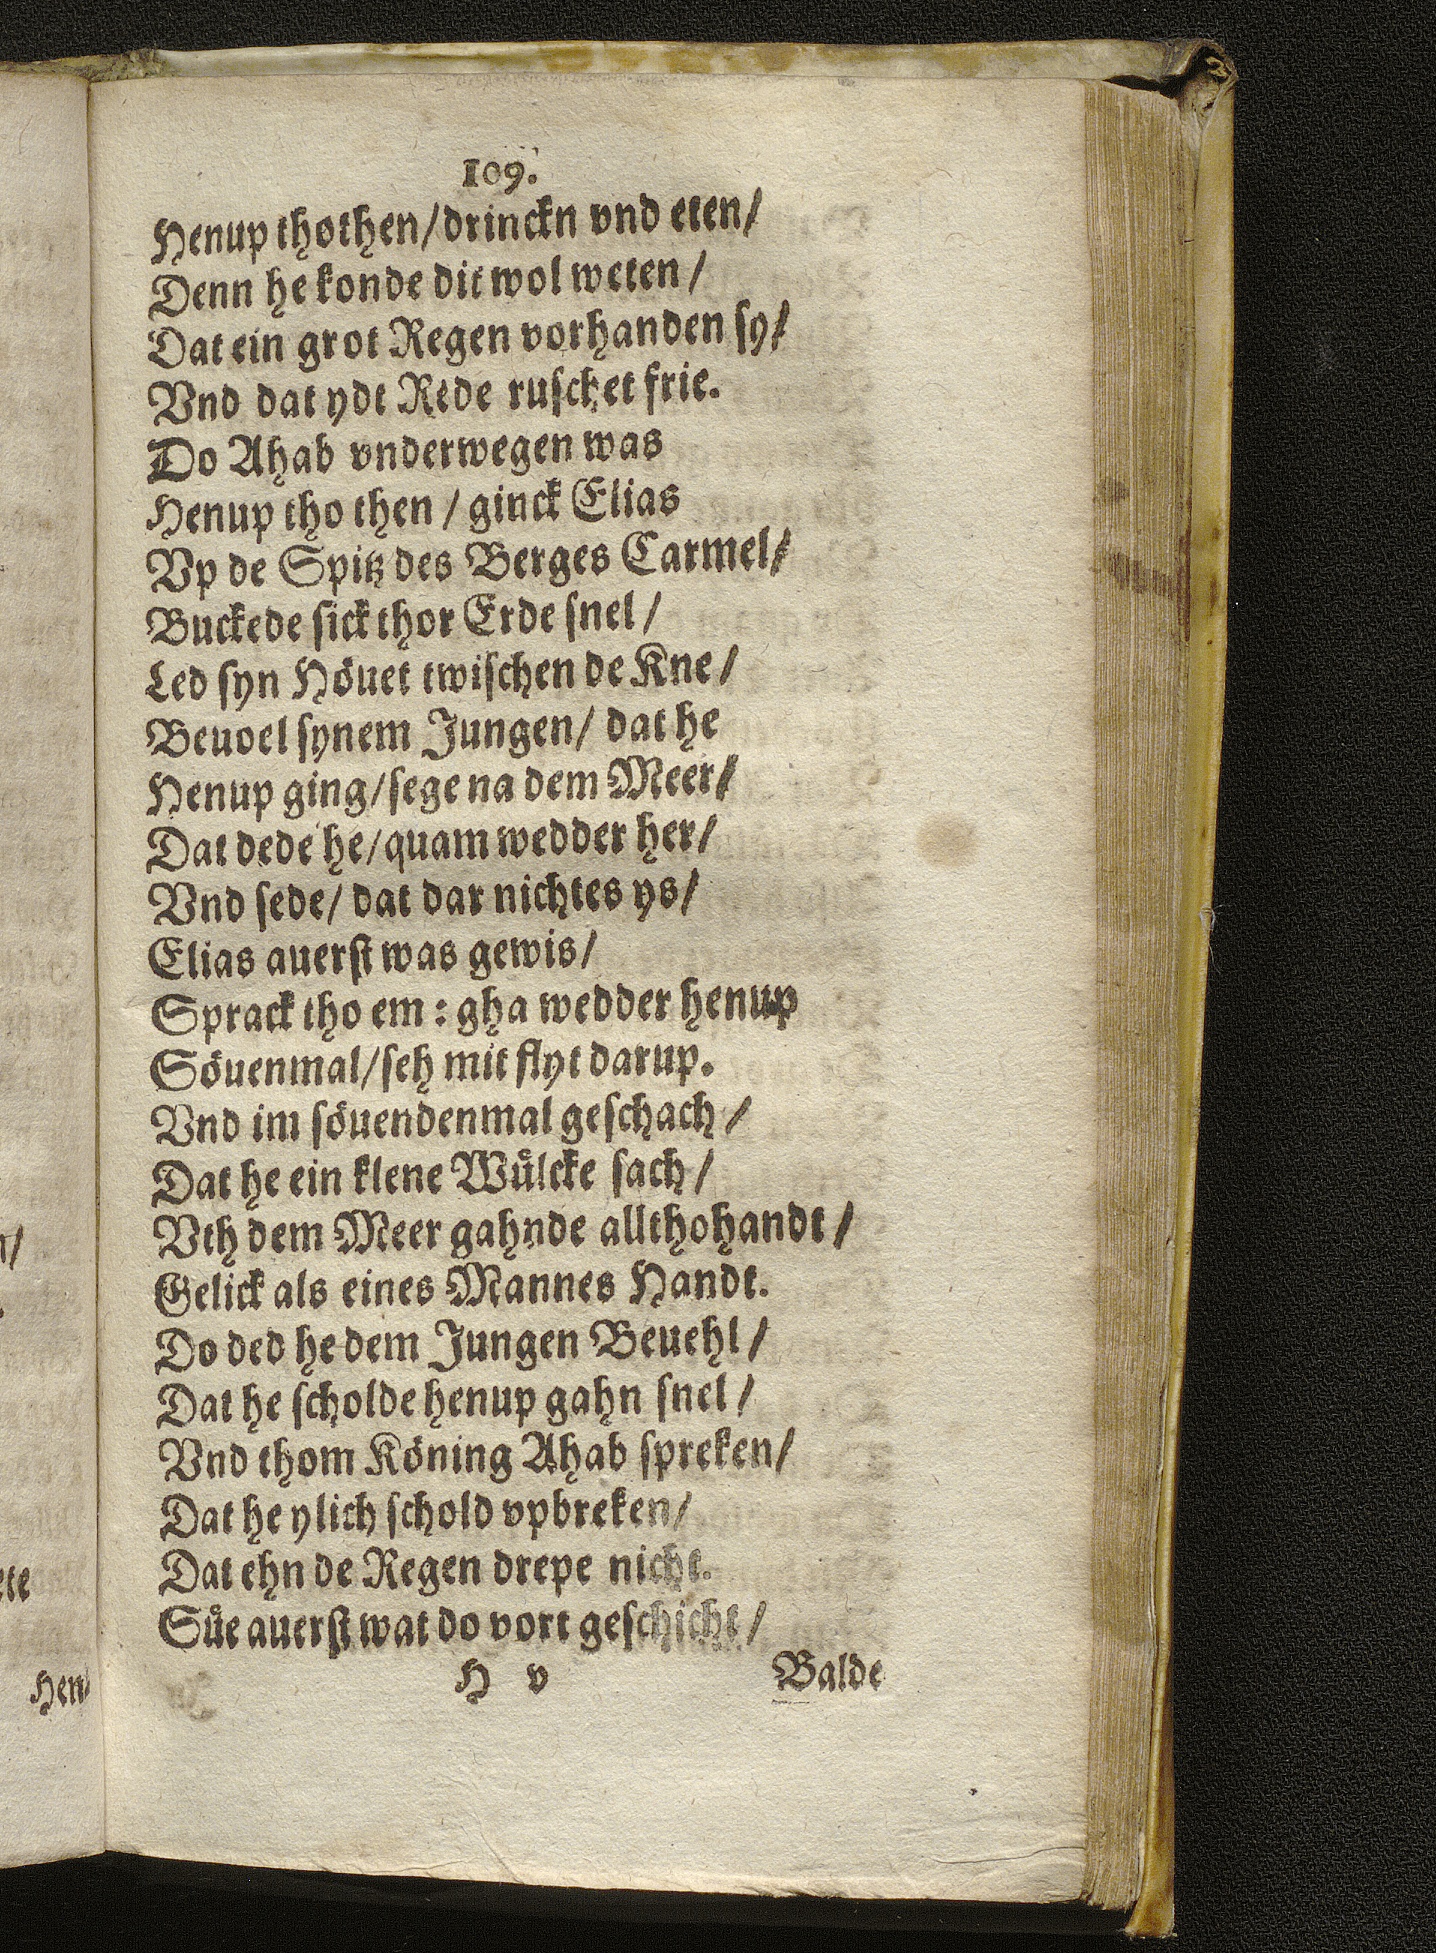 109.
Henup thothen/drinckn vnd eten/
Denn he konde dit wol weten/
Dat ein grot Regen vorhanden sy/
Vnd dat ydt Rede ruschet frie.
Do Ahab vnderwegen was
Henup tho then / ginck Elias
Vp de Spitz des Berges Carmel/
Buckede sick thor Erde snel /
Led syn Höuet twischen de Kne /
Beuoel synem Jungen/ dat he
Henup ging/sege na dem Meer/
Dat dede he/quam wedder her/
Vnd sede/ dat dar nichtes ys/
Elias auerst was gewis/
Sprack tho em : gha wedder henup
Söuenmal/seh mit flyt darup.
Vnd im söuendenmal geschach /
Dat he ein klene Wülcke sach /
Vth dem Meer gahnde allthohandt /
Gelick als eines Mannes Handt.
Do ded he dem Jungen Beuehl /
Dat he scholde henup gahn snel /
Vnd thom Köning Ahab spreken/
Dat he ylich schold vpbreken/
Dat ehn de Regen drepe nicht.
Süe auerst wat do vort geschicht /
H v Balde